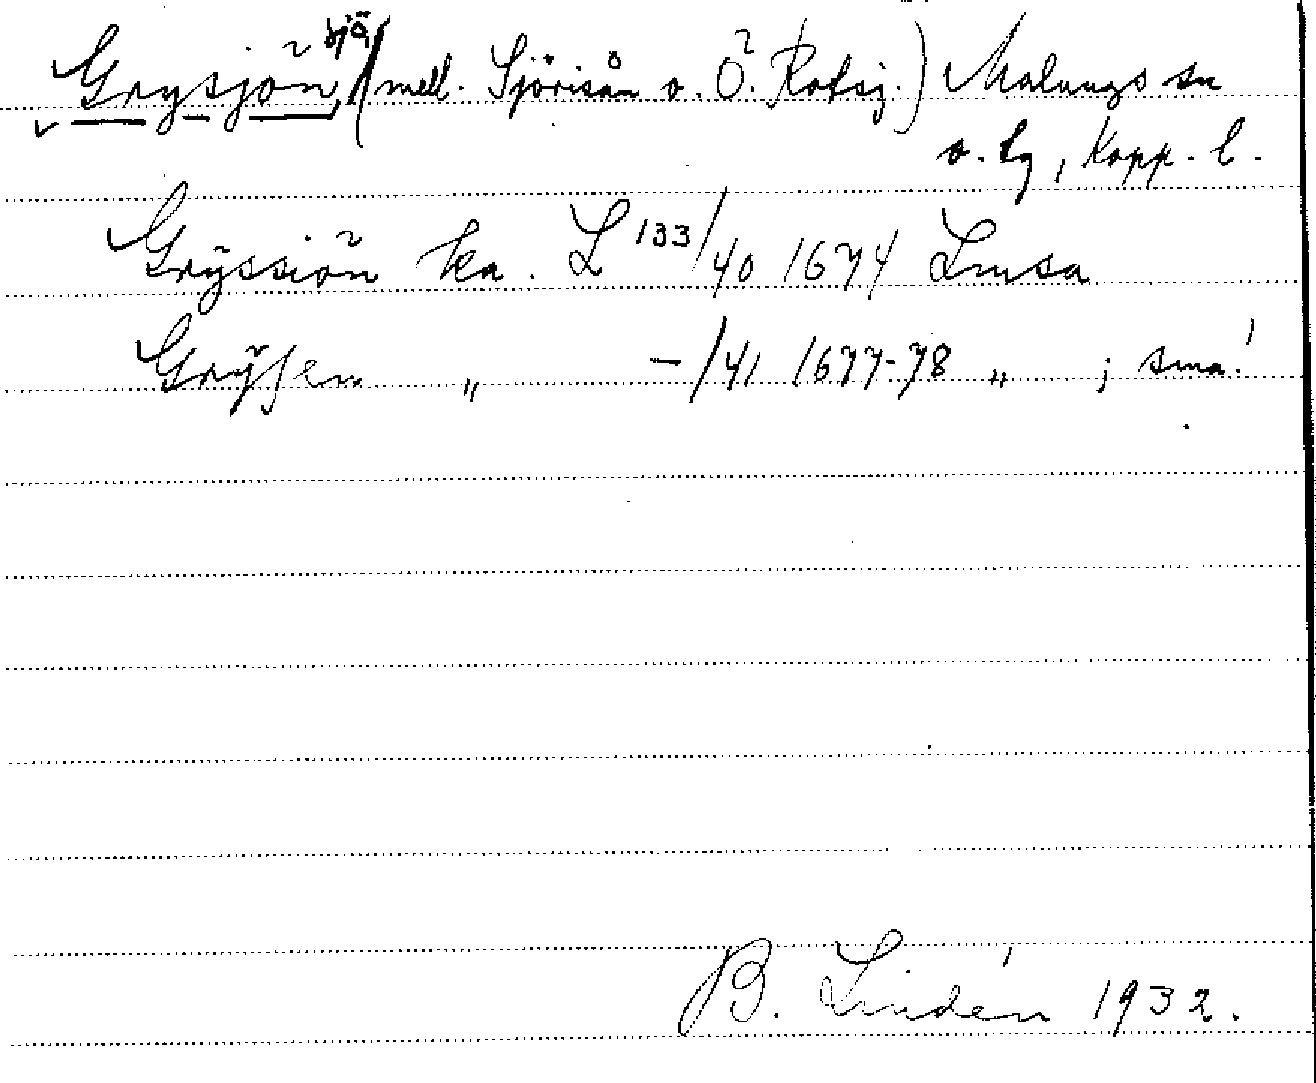 Grysjön, sjö, (mell. Sjörisån o. Ö. Rotsj.) Malungs sn
o. tg, Kopp. l.
Grÿssiön ka. L 133/40 1674 Limsa
Grÿsen " –/41 1677-78 " ; små!
B. Lindén 1932.